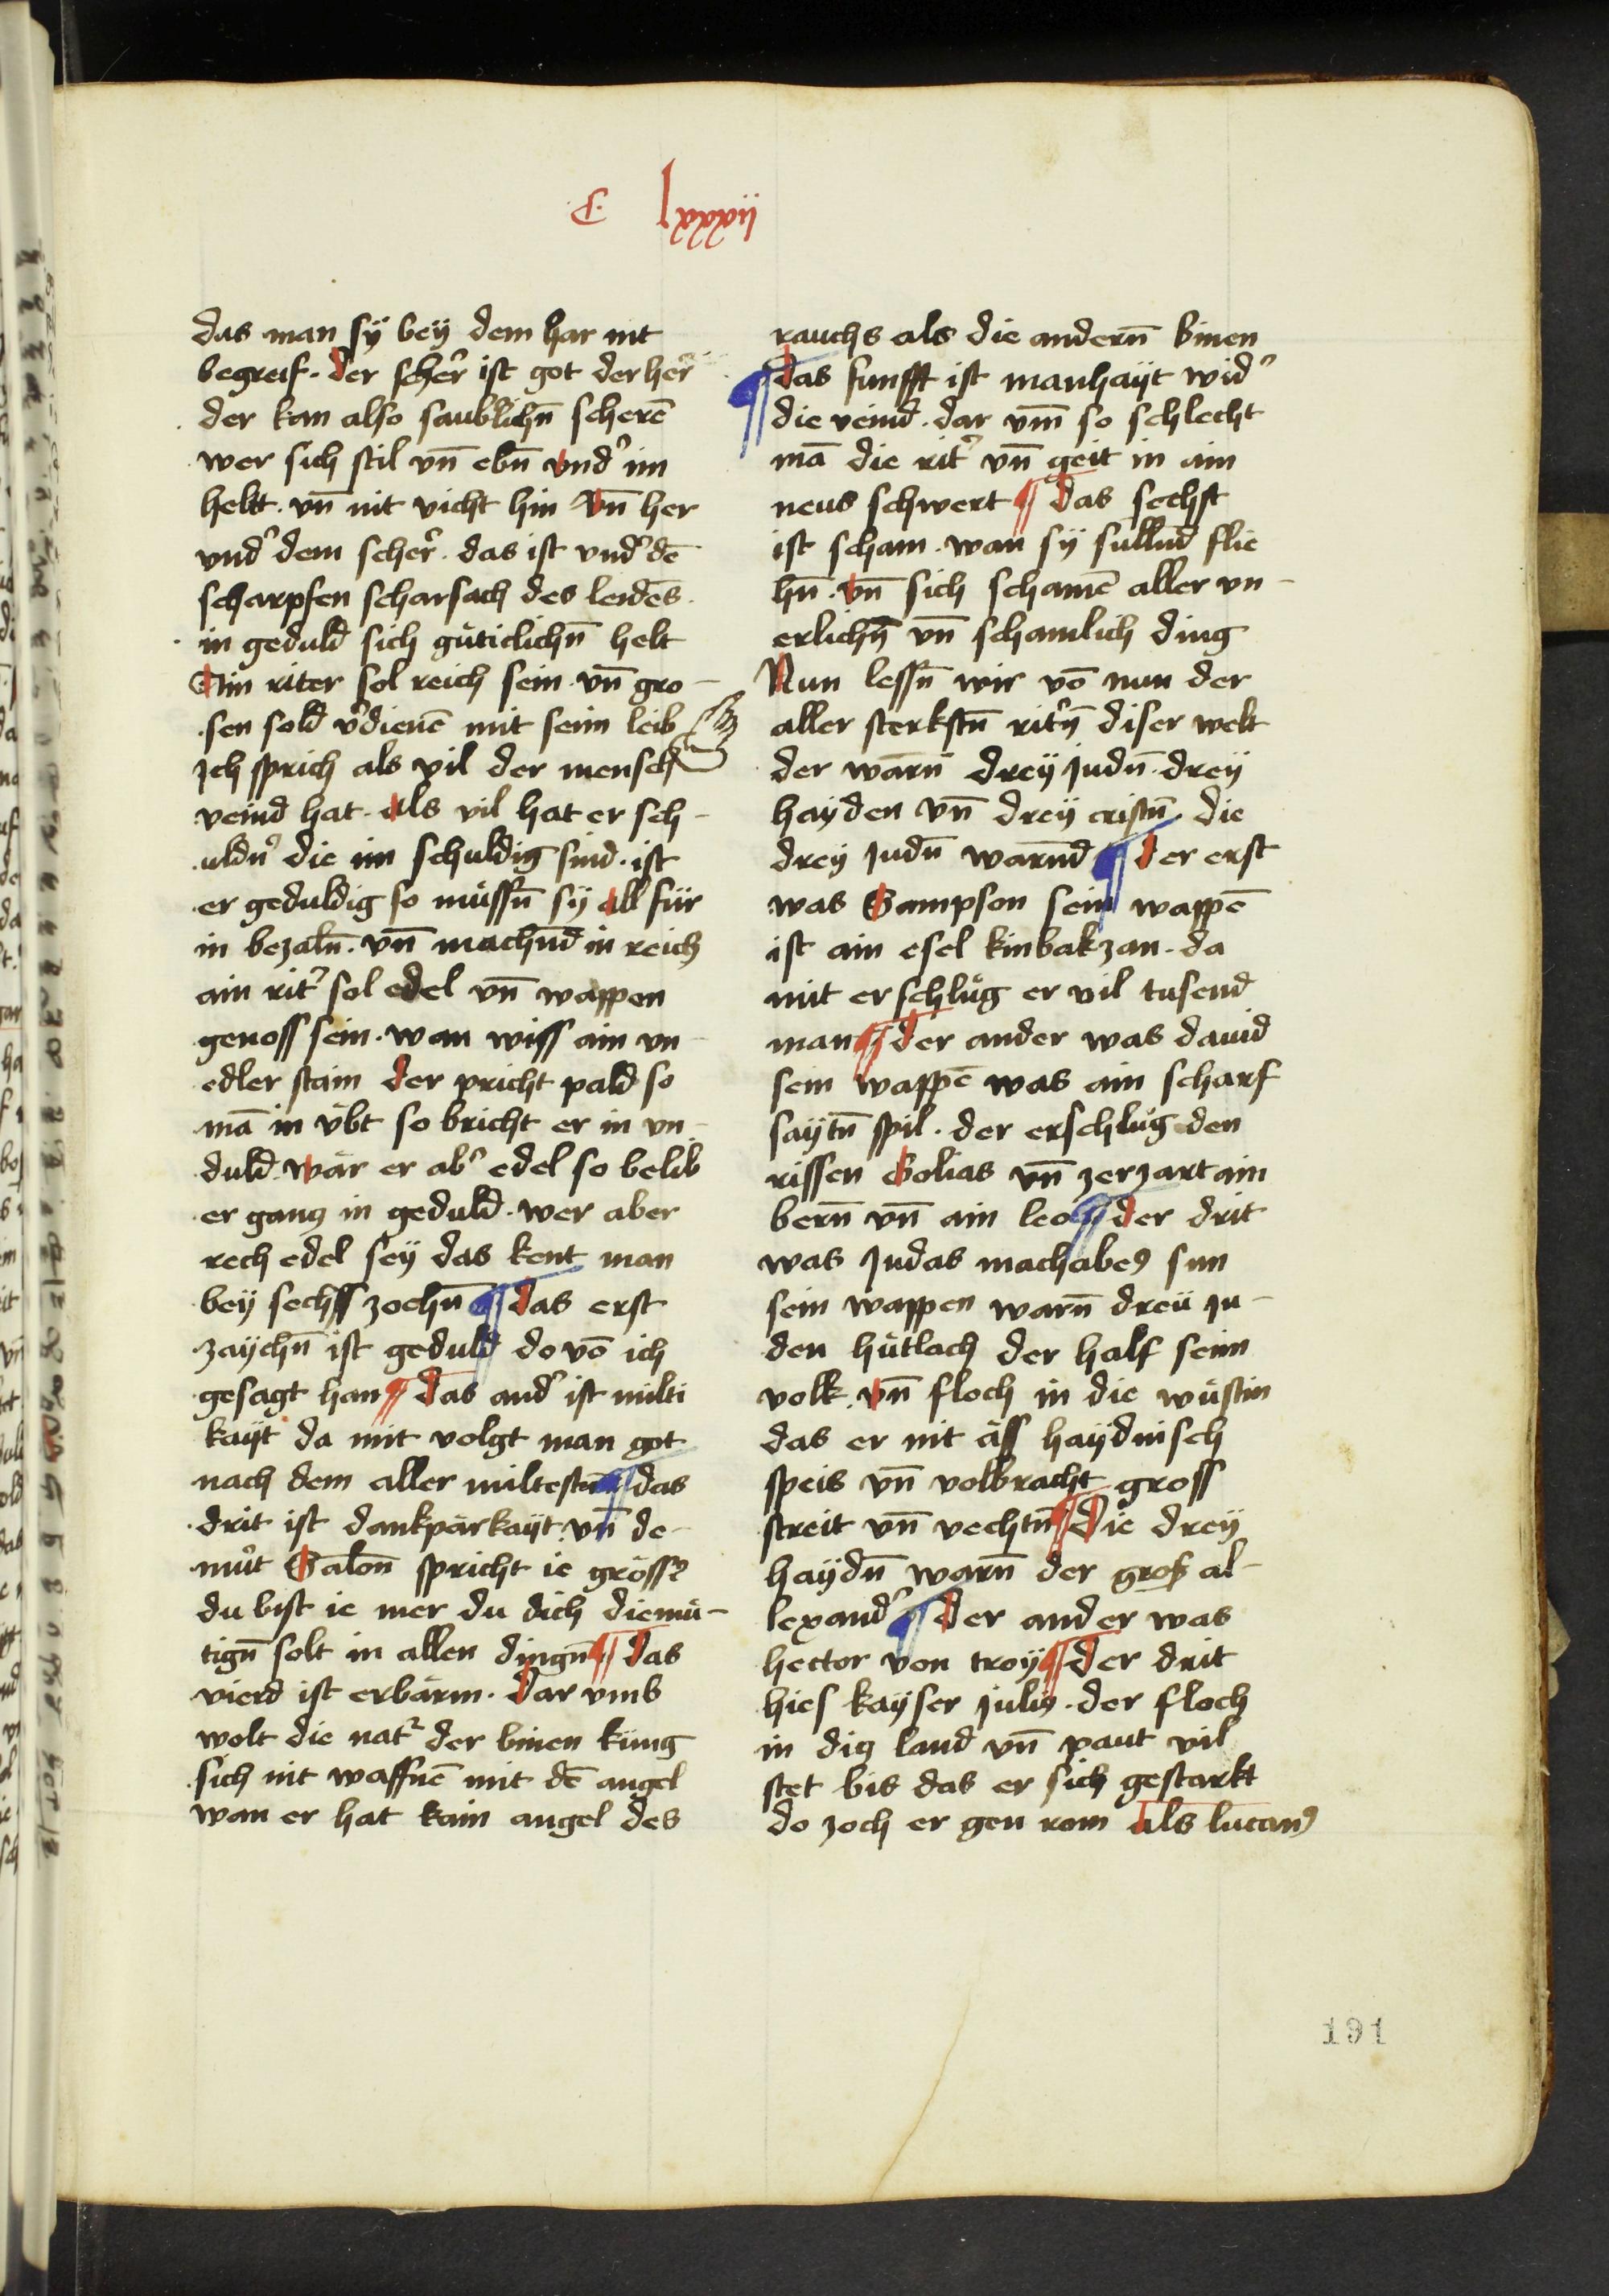 C lxxxxii
das man sÿ beÿ dem har nit
begreif. der scher̃ ist got der her̃
der kan also saublichn̄ scherē
wer sich stil vn̄ ebn̄ vnd᾽ im
heltt. vn̄ nit vicht hin vn̄ her
vnd᾽ dem scher̃. das ist vnd᾽ dē
scharpfen scharsach des leidēs.
in geduld sich güticlichn̄ helt
Ain riter sol reich sein. vn̄ gro-
sen sold v᾽dienē mit seim leib
Ich sprich als vil der mensch
veind hat. als vil hat er sch-
uldn᾽ die im schuldig sind. ist
er geduldig so müssn̄ sÿ all für
in bezaln̄. vn̄ machnd in reich
ain rit᾽ sol edel vn̄ wappen
genoss sein. wan wiss ain vn-
edler stam der pricht pald so
mā in übt so bricht er in vn-
duld. wär er ab᾽ edel so belib
er gancz in geduld. wer aber
rech edel seÿ das kent man
beÿ sechss zochn̄ ¶ das erst
zaÿchn̄ ist geduld do vō ich
gesagt han ¶ das and᾽ ist milti
kaÿt da mit volgt man got
nach dem aller miltestn̄ ¶ das
drit ist dankpärkaÿt. vn̄ de-
müt Salon̄ spricht ie grösß᾽
du bist ie mer du dich diemü-
tign̄ solt in allen dingn̄ ¶ das
vierd ist erbärm. Dar vmb
wolt die nat᾽ der binen küng
sich nit waffnē mit dē angel
wan er hat kain angel des
rauchs als die andern̄ binen
¶ das funfft ist manhaÿt wid᾽
die veind. dar vm̄ so schlecht
mā die rit᾽ vn̄ geit in ain
neus schwert ¶ das sechst
ist scham. wan sÿ sullnd flie
hn̄. vn̄ sich schamē aller vn-
erlichn̄ vn̄ schamlich ding
Nun lessn̄ wir vō nun der
aller sterkstn̄ rit᾽n̄ diser welt
der warn̄ dreÿ Judn̄. dreÿ
haÿden vn̄ dreÿ cristn̄ die
dreÿ Judn̄ warnd ¶ der erst
was Sampson sein wappē
ist ain esel kinbakzan. da
mit erschlüg er vil tusend
man ¶ der ander was dauid
sein wappē was ain scharf
saÿtn̄ spil. der erschlüg den
rissen Golias vn̄ zerzart ain
bern̄ vn̄ ain leo ¶ der drit
was Judas machabeꝰ sun
sein wappen warn̄ dreü Ju-
den hütlach der half seim
volk. vn̄ floch in die wüstin
das er nit äss haÿdnisch
speis vn̄ volbracht gross
streit vn̄ vechtn̄ ¶ Die dreÿ
haÿdn̄ warn̄ der groß al-
lexand᾽ ¶ der ander was
hector von troÿ ¶ der drit
hies kaÿser Juliꝰ. der floch
in diꝰ land vn̄ paut vil
stet bis das er sich gestarkt
do zoch er gen rom als lucanꝰ
191